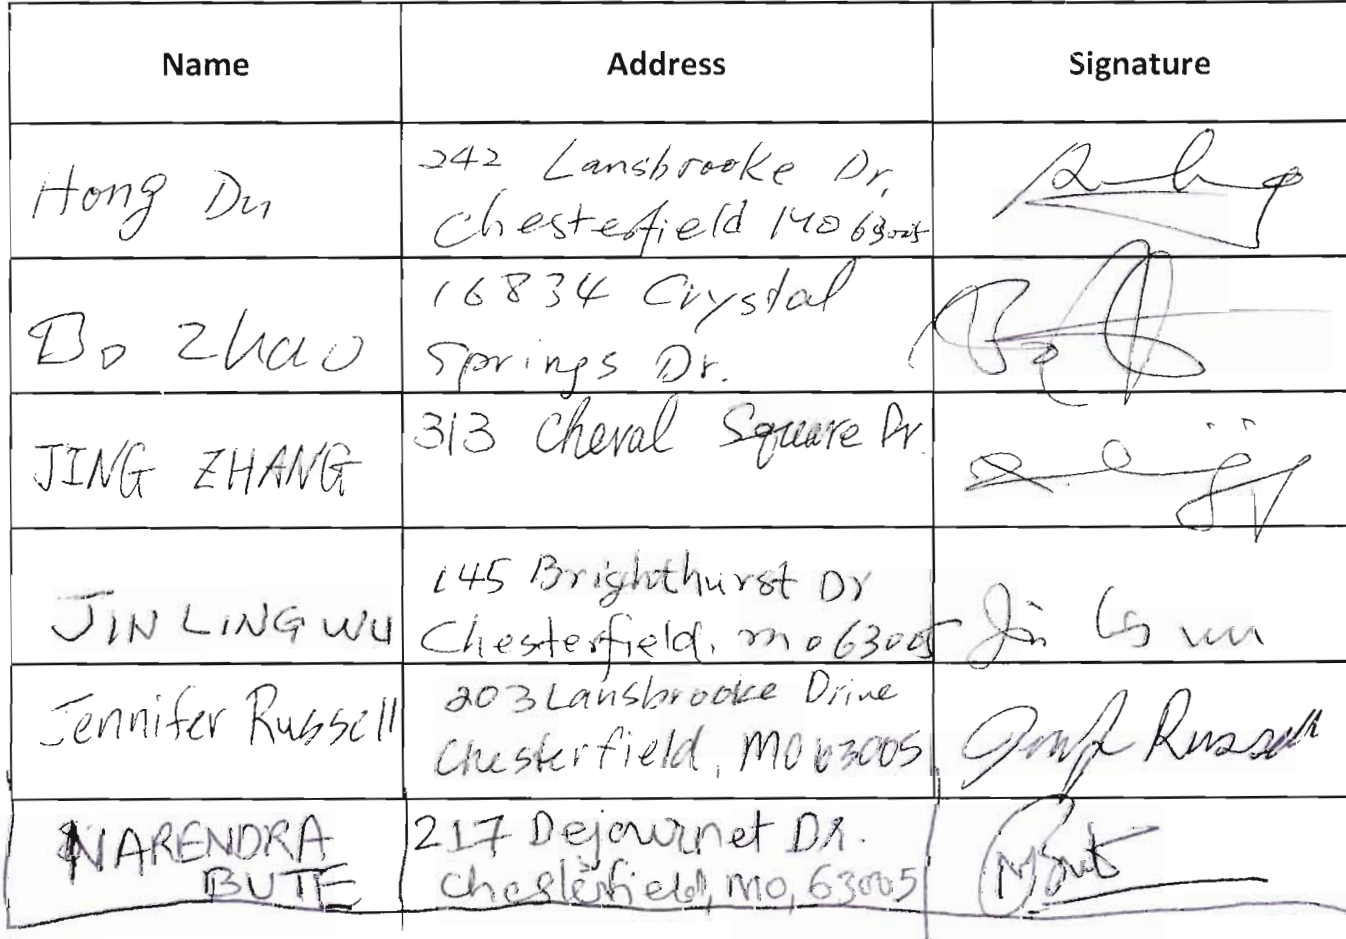 Name Address Signature
Hong Du
242 Lansbrooke Dr,
Chesterfield MO 63005
Bo Zhao
16834 Crystal
Springs Dr.
Bo
JING ZHANG
313 Cheval Square Dr.
JIN LING WU
145 Brighthurst Dr
Chesterfield, mo 63005
Jin Wu
Jennifer Russell
203 Lansbrooke Drive
Chesterfield, MO 63005
Russell
NARENDRA
BUTE
217 Dejournet Dr.
Chesterfield, MO, 63005
NBute